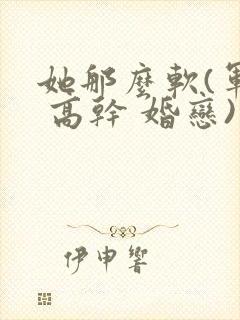 她那麼軟(軍
高幹 婚戀)
伊申響